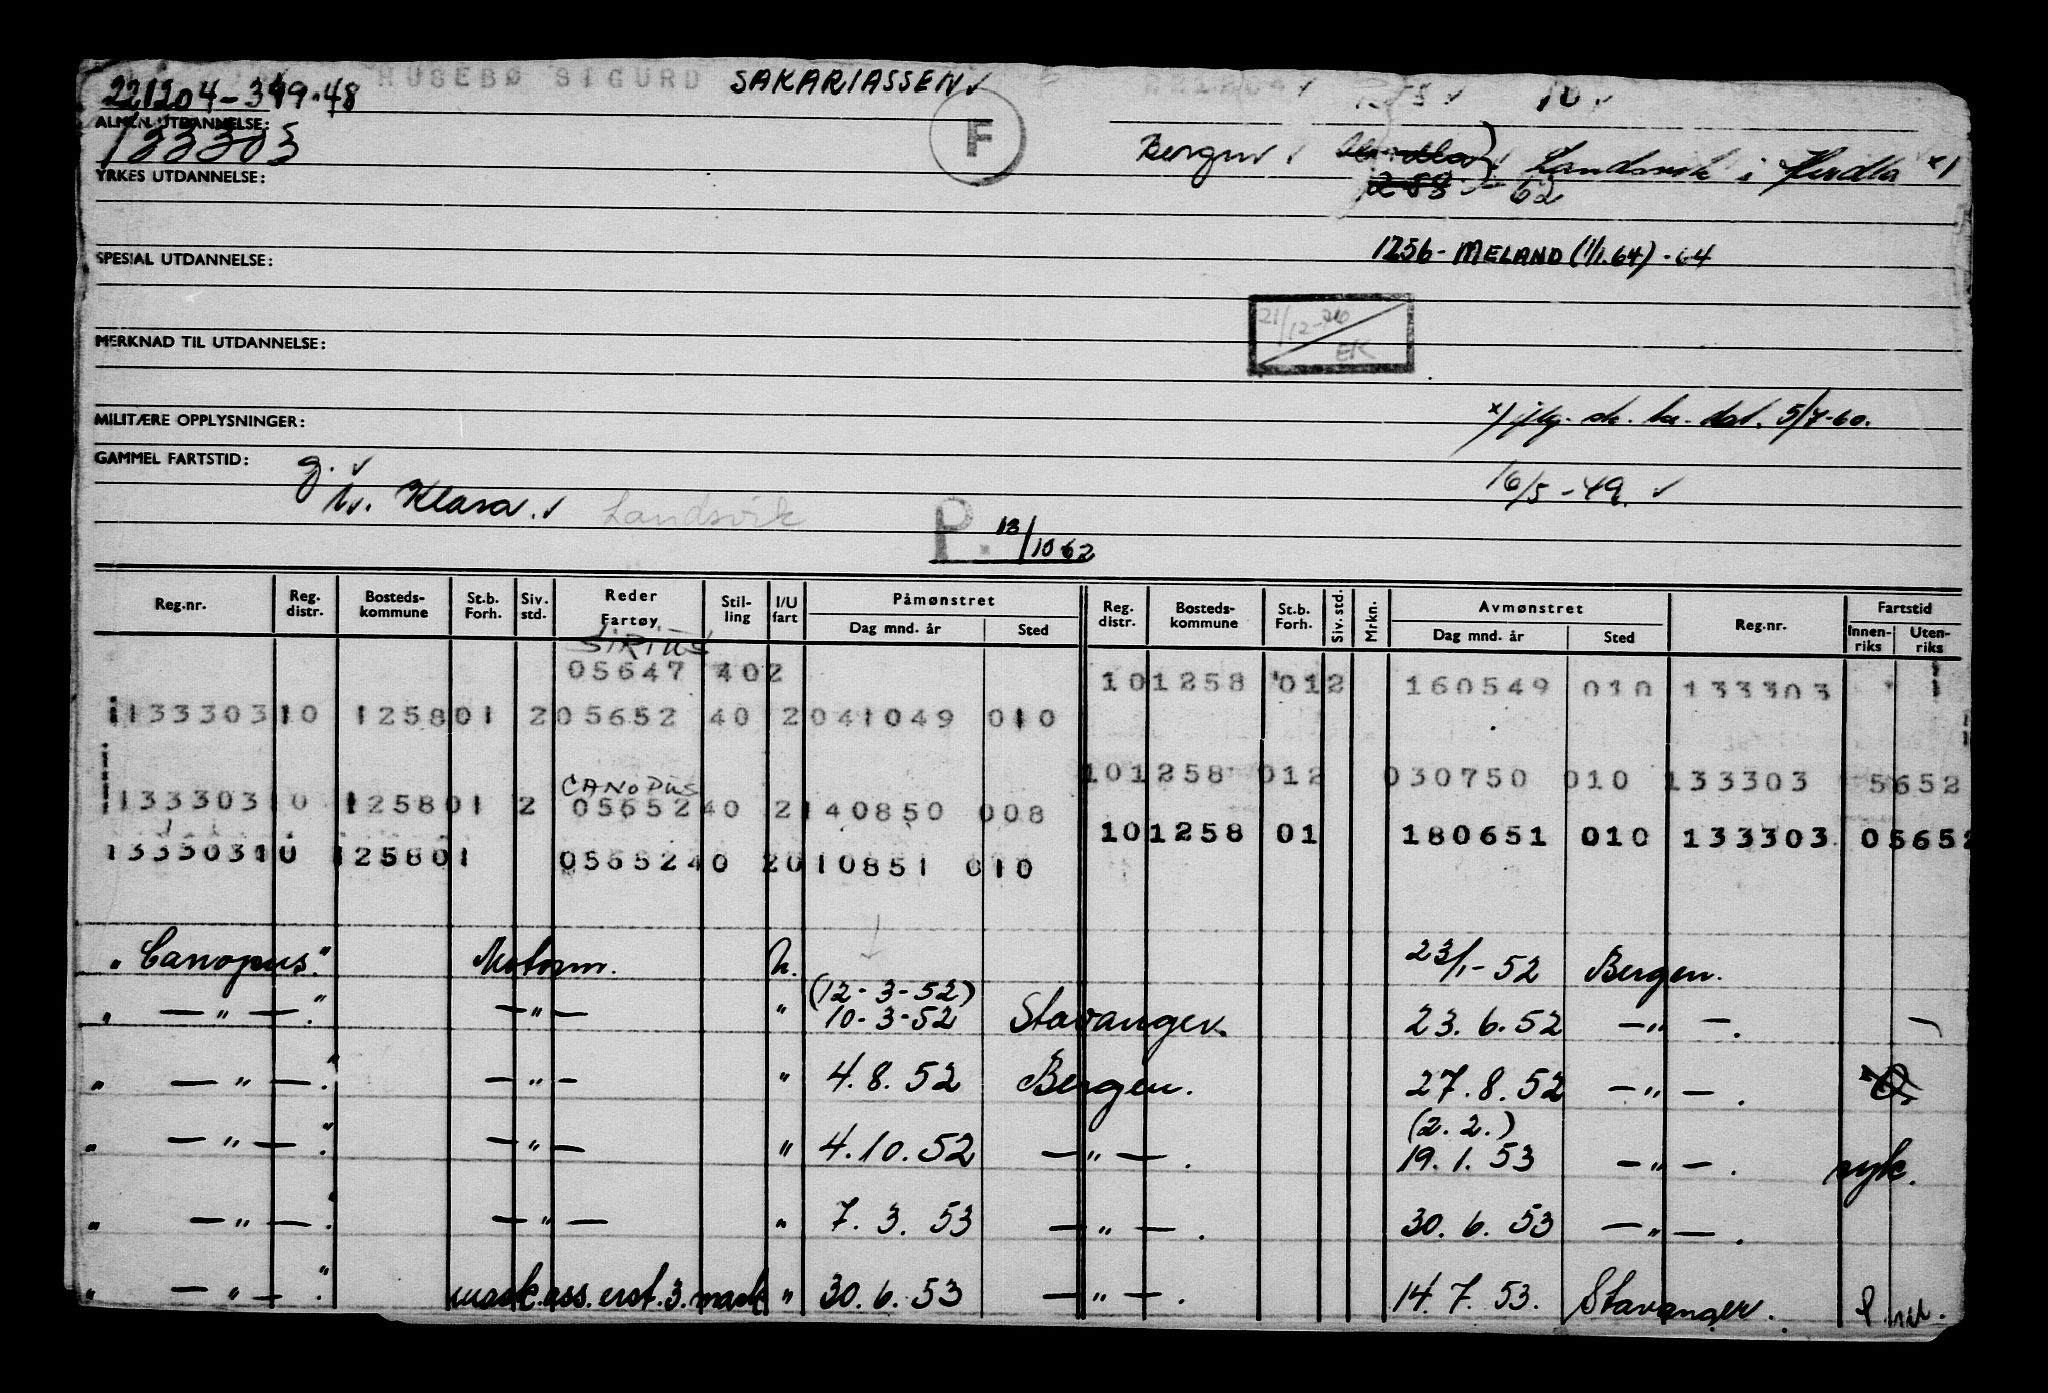 221204-349.48 HUSEBØ SIGURD SAKARIASSEN 221204 10
ALMEN UTDANNELSE: F
133303 Bergen Landsvik i Herdla x)
YRKES UTDANNELSE: 62
1256- MELAND (1/1.64) -64
SPESIAL UTDANNELSE:
21/12-26
EK
MERKNAD TIL UTDANNELSE:
MILITÆRE OPPLYSNINGER: x) jfg. sk. dat. 5/7-60.
GAMMEL FARTSTID: g. 16/5-49.
Klara. Landsvik P. 13/10 62
Reg.nr. Reg. distr. Bosteds-kommune St.b. Forh. Siv. std. Reder Fartøy Stil-ling I/U fart Påmønstret Dag mnd. år Sted Reg. distr. Bosteds-kommune St.b. Forh. Siv. std. Mrkn. Avmønstret Dag mnd. år Sted Reg.nr. Fartstid Innen-riks Uten-riks
SIRIUS
05647 402 101258 012 160549 010 133303
13330310 125801 205652 40 2041049 010
101258 012 030750 010 133303 5652
CANOPUS
13330310 125801 2 0565240 2140850 008
101258 01 180651 010 133303 05652
13330310 125801 0565240 2010851 010
"Canopus." Motorm. U. 23/1-52 Bergen.
" — " — ." — " — " (12-3-52)
10-3-52 Stavanger. 23.6.52 — " — .
" — " — ." — " — " 4.8.52 Bergen. 27.8.52 — " — .
" — " — ." — " — " 4.10.52 — " — . (2.2.)
19.1.53 — " — . syk.
" — " — ." — " — " 7.3.53 — " — . 30.6.53 — " — .
" — " — ." mask.ass. erst. 3. mask " 30.6.53 — " — . 14.7.53. Stavanger.